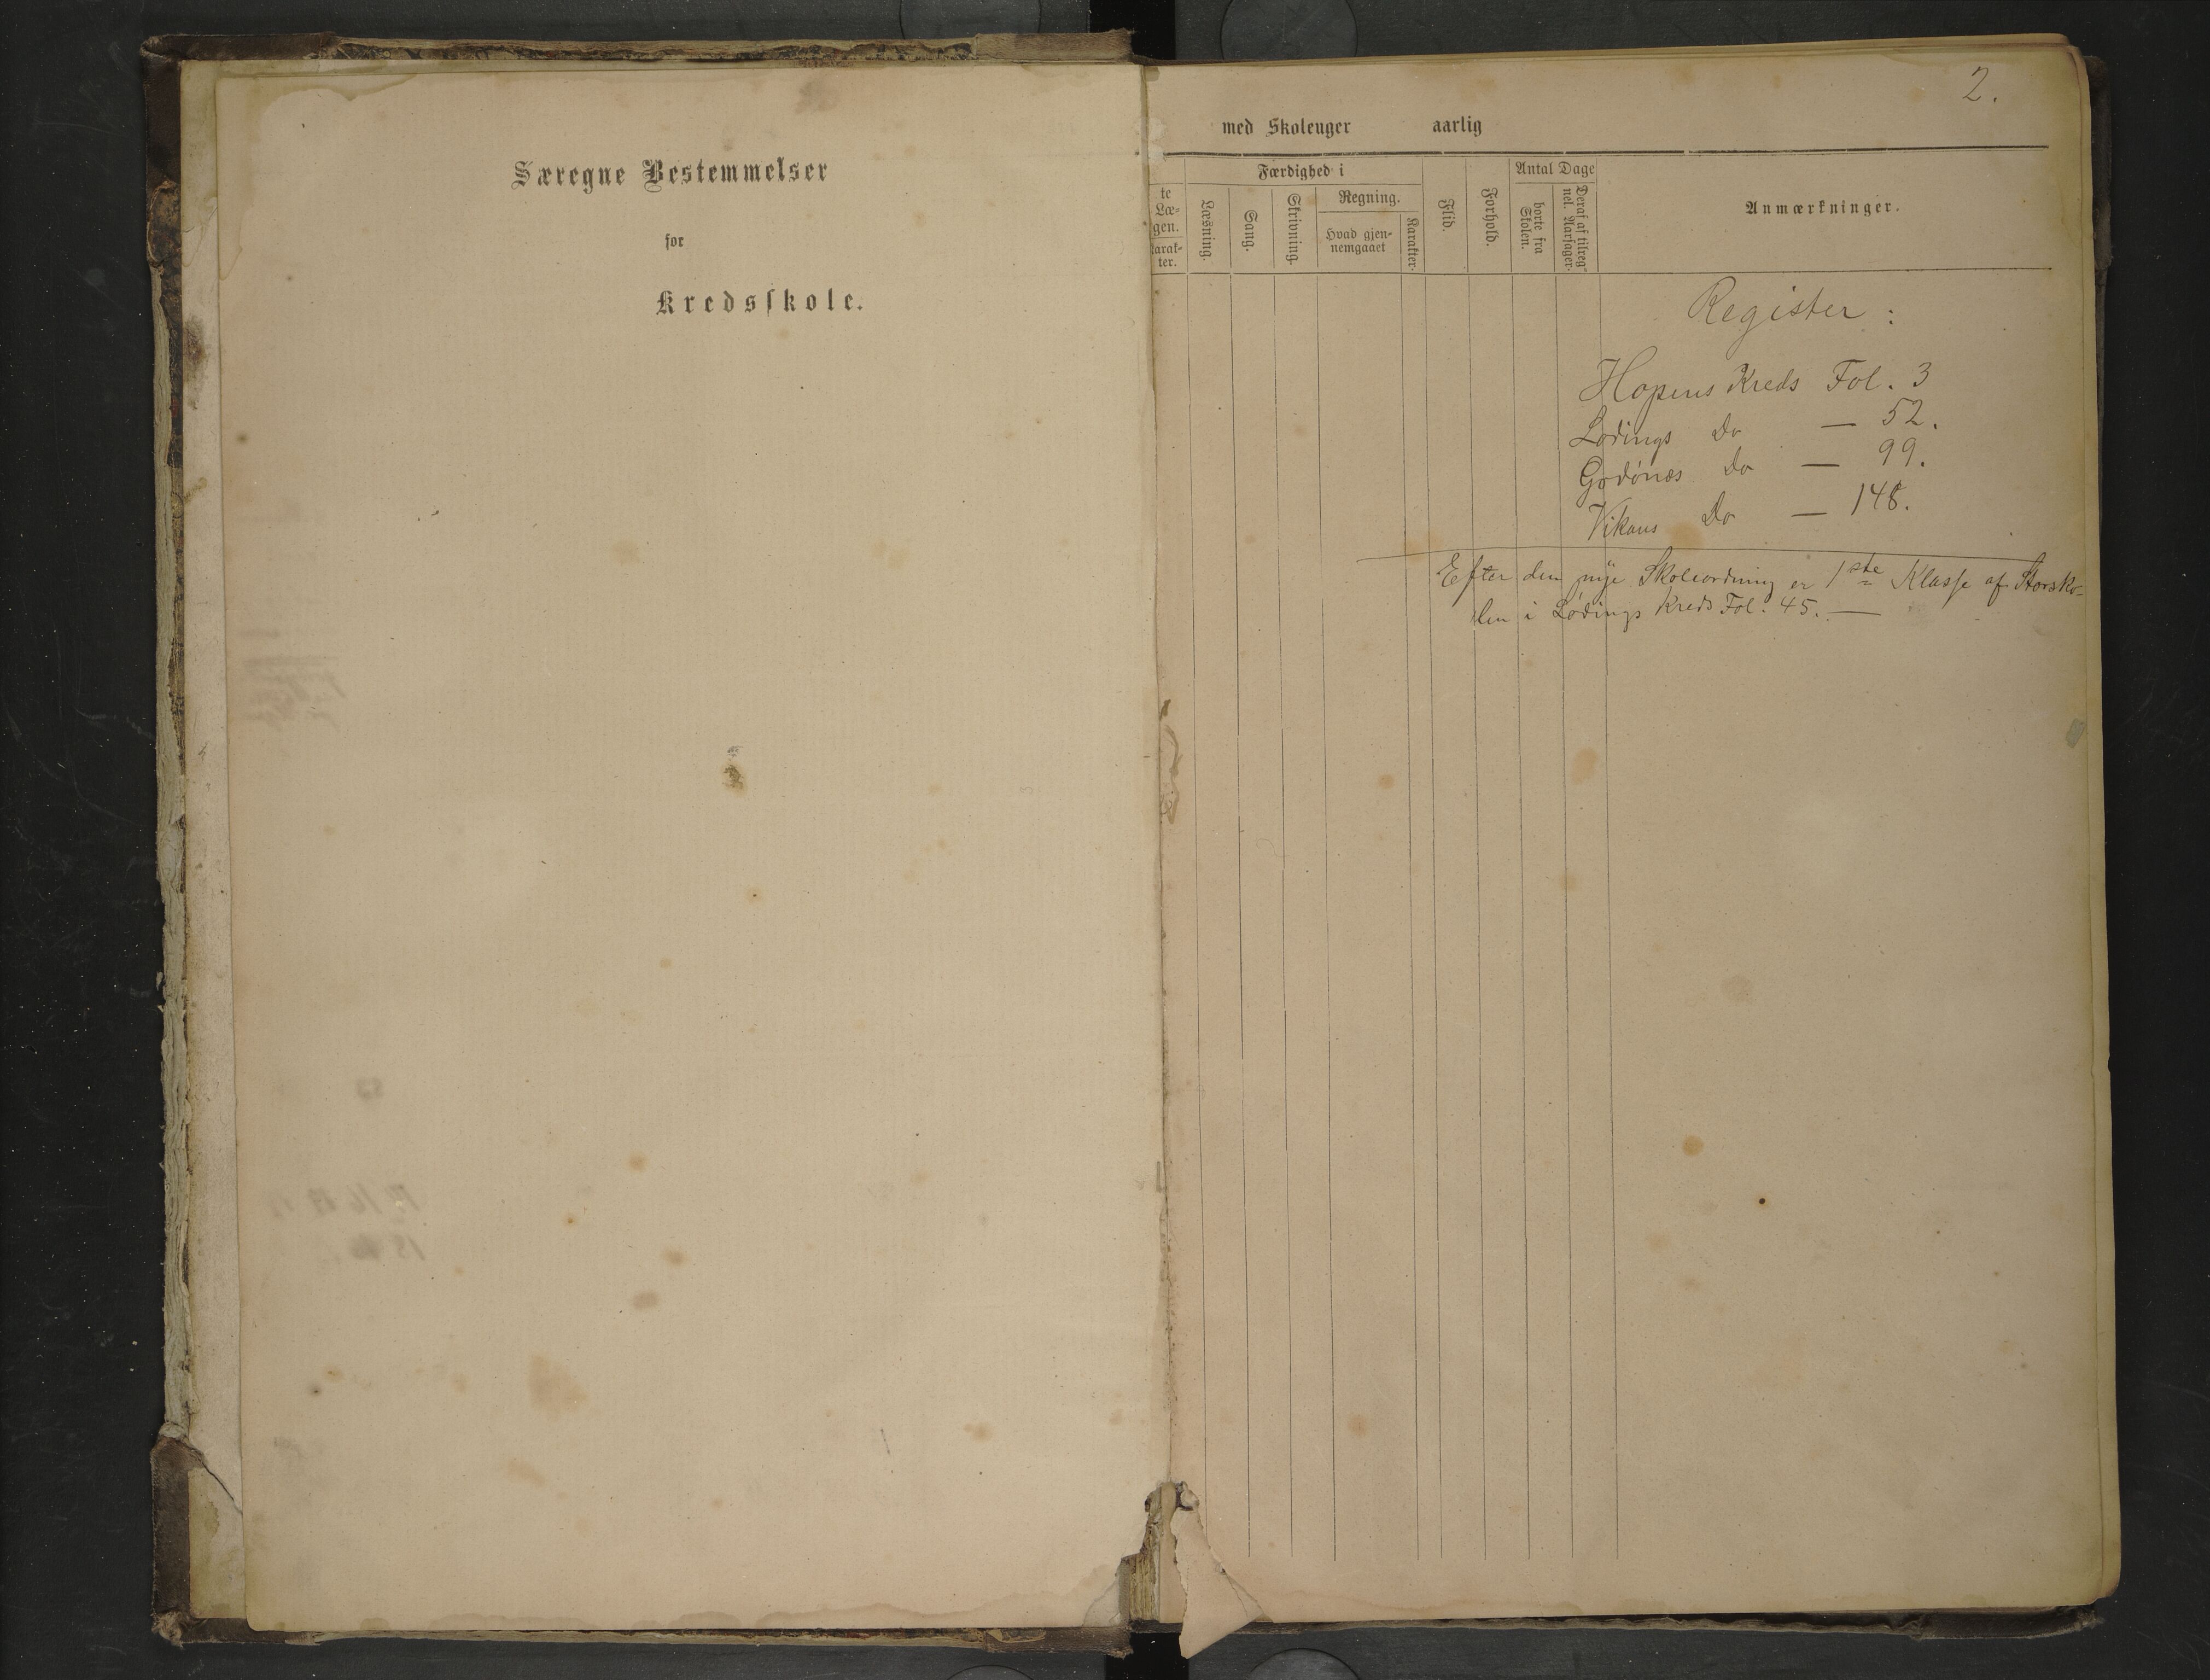 Særegne Bestemmelser
for
Kredsskole.
2.
med Skoleuger aarlig
te Læ-
gen.
Karak-
ter.
Færdighed i
Læsning.
Sang.
Skrivning.
Regning.
Hvad gjen-
nemgaaet
Karakter.
Flid.
Forhold.
Antal Dage
borte fra
Skolen.
Deraf af tilreg-
nel. Aarsager.
Anmærkninger.
Register :
Hopens Kreds Fol. 3
Lødings Do — 52.
Godönæs Do — 99.
Vikans Do — 148.
Efter den nye Skoleordning er 1ste Klasse af Storsko-
len i Lødings Kreds Fol. 45. —